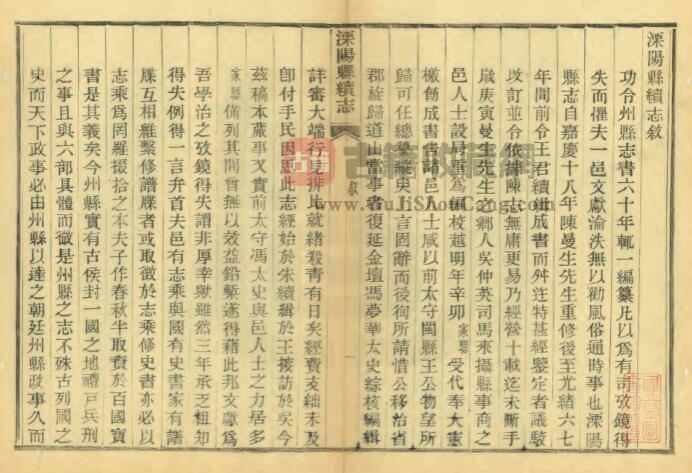 溧陽縣續志敘
功令州縣志書六十年輒一編纂凡以爲有司攷鏡得
失而懼夫一邑文獻淪泆無以勸風俗通時事也溧陽
縣志自嘉慶十八年陳曼生先生重修後至光緒六七
年間前令王君續緝成書而舛迕特甚經鑒定者議駁
改訂並令依據陳志無庸更易乃經營十載迄未斷手
歲庚寅曼生先生之鄉人吳仲英司馬來攝縣事商之
邑人士設局重爲編校越明年辛卯家驤受代奉大憲
檄創成書書諸邑人士咸以前太守閩縣王公物望所
歸可任總纂縱臾一言固辭而後徇所請惜公移治省
郡旋歸道山當事者復延金壇馮夢華太史綜核編緝
溧陽縣續志
敘
一
詳審大端行見排比就緒殺青有日矣經費支絀未及
卽付手民因思此志經始於朱續緝於王採訪於吳今
茲稿本蕆事又實前太守馮太史與邑人士之力居多
家驤備列其間曾無以效益鉛槧遂得藉此邦文獻爲
吾學治之攷鏡得失謂非厚幸歟雖然三年承乏粗知
得失例得一言弁首夫邑有志乘與國有史書家有譜
牒互相維繫修譜牒者或取徵於志乘修史書亦必以
志乘爲罔羅掇拾之本夫子作春秋半取資於百國寶
書是其義矣今州縣實有古侯封一國之地禮戶兵刑
之事且與六部具體而微是州縣之志不殊古列國之
史而天下政事必由州縣以達之朝廷州縣政事久而
古籍收藏网
www.GuJiShouCang.com